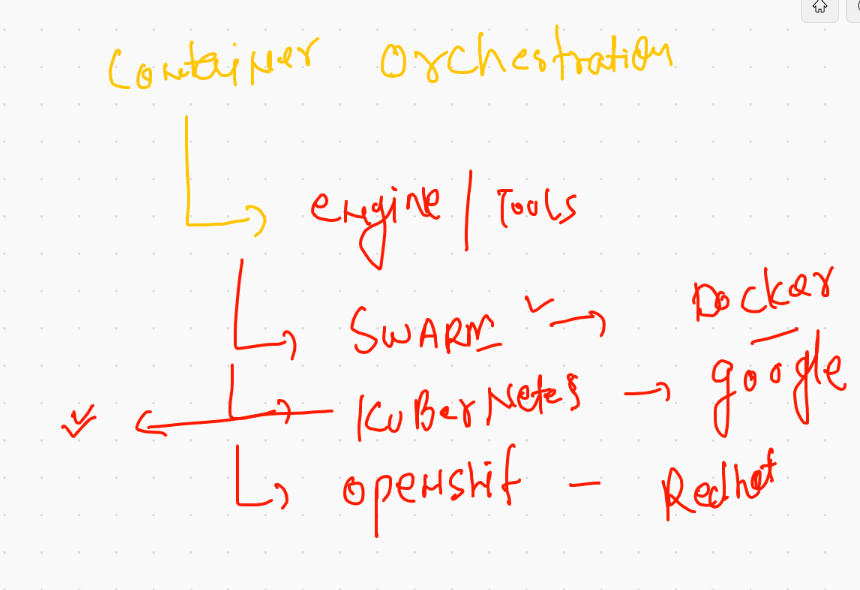 Container Orchestration
engine | Tools
SWARM → Docker
KuBerNetes → google
openshif - Redhat